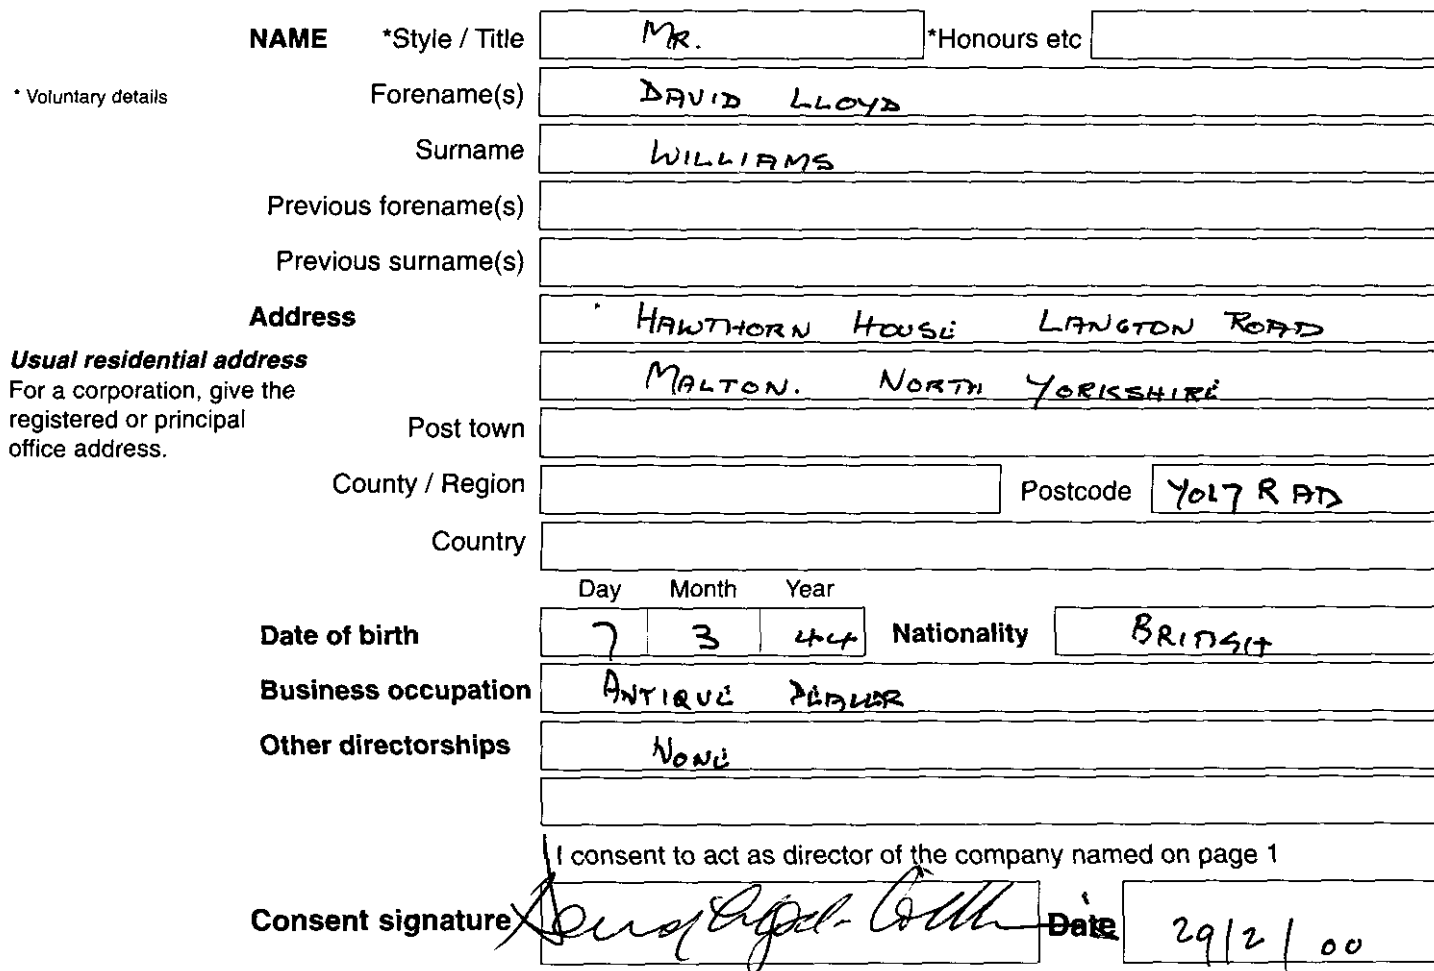 NAME *Style / Title MR. *Honours etc
* Voluntary details Forename(s) DAVID LLOYD
Surname WILLIAMS
Previous forename(s)
Previous surname(s)
Address HAWTHORN HOUSE LANGTON ROAD
Usual residential address
MALTON. NORTH YORKSHIRE
For a corporation, give the
registered or principal
Post town
office address.
County / Region Postcode YO17 R AD
Country
Day Month Year
Date of birth 7 3 44 Nationality BRITISH
Business occupation ANTIQUE DEALER
Other directorships NONE
I consent to act as director of the company named on page 1
Consent signature Date 29/2/00